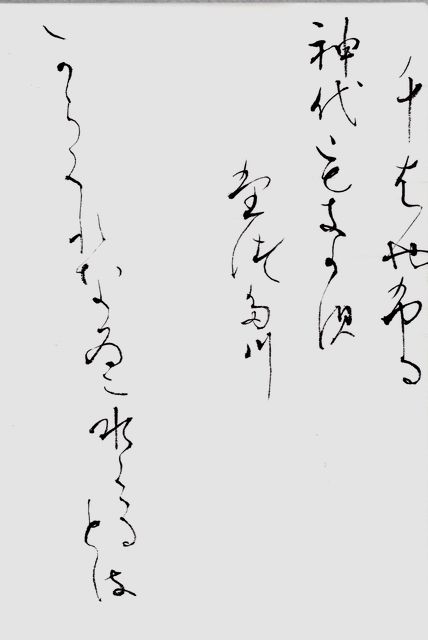 千はやふる
神代もきかす
たつた川
からくれなゐに水くゝるとは